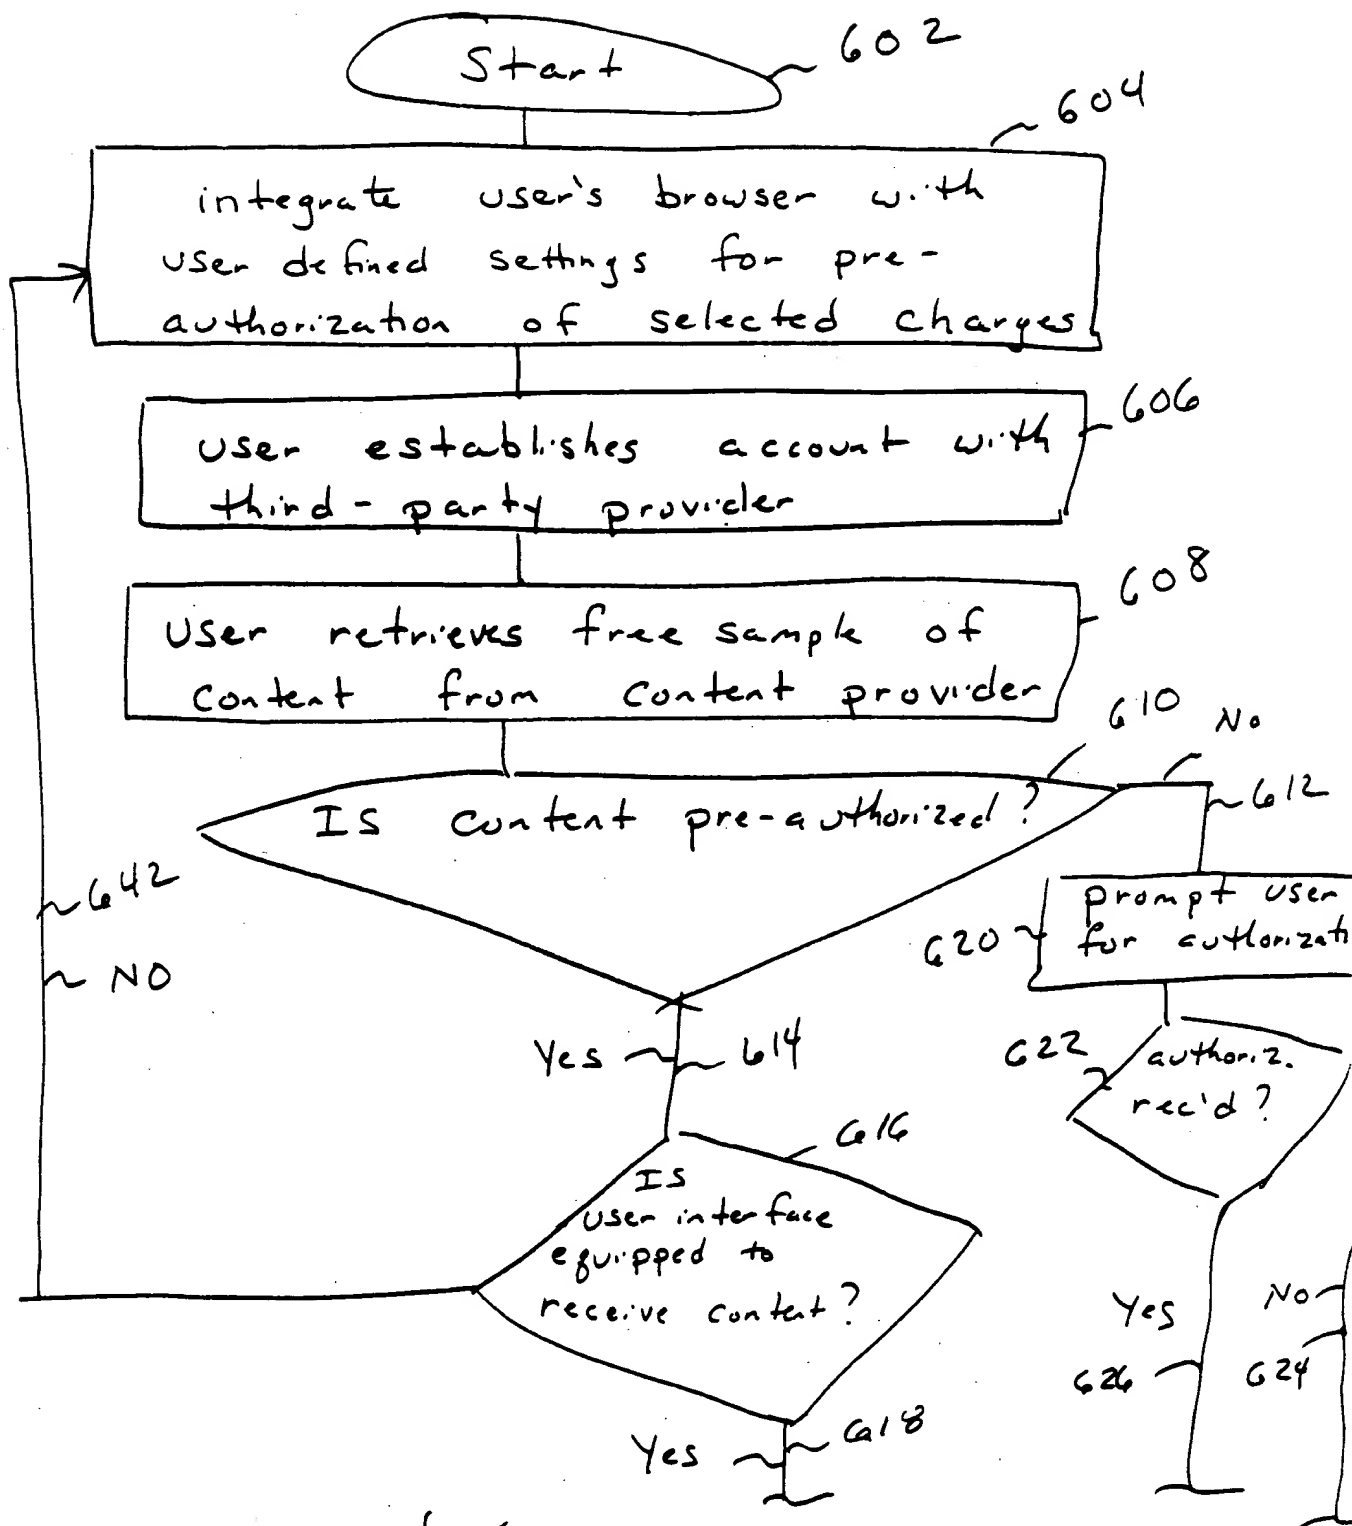 Start
602
604
integrate user's browser with
user defined settings for pre-
authorization of selected charges
606
user establishes account with
third-party provider
608
User retrieves free sample of
content from content provider
610
No
Is content pre-authorized?
612
642
NO
prompt user
for
620
Yes
614
622
authoriz.
rec'd?
616
Is
user interface
equipped to
receive content?
Yes
626
No
624
Yes
618